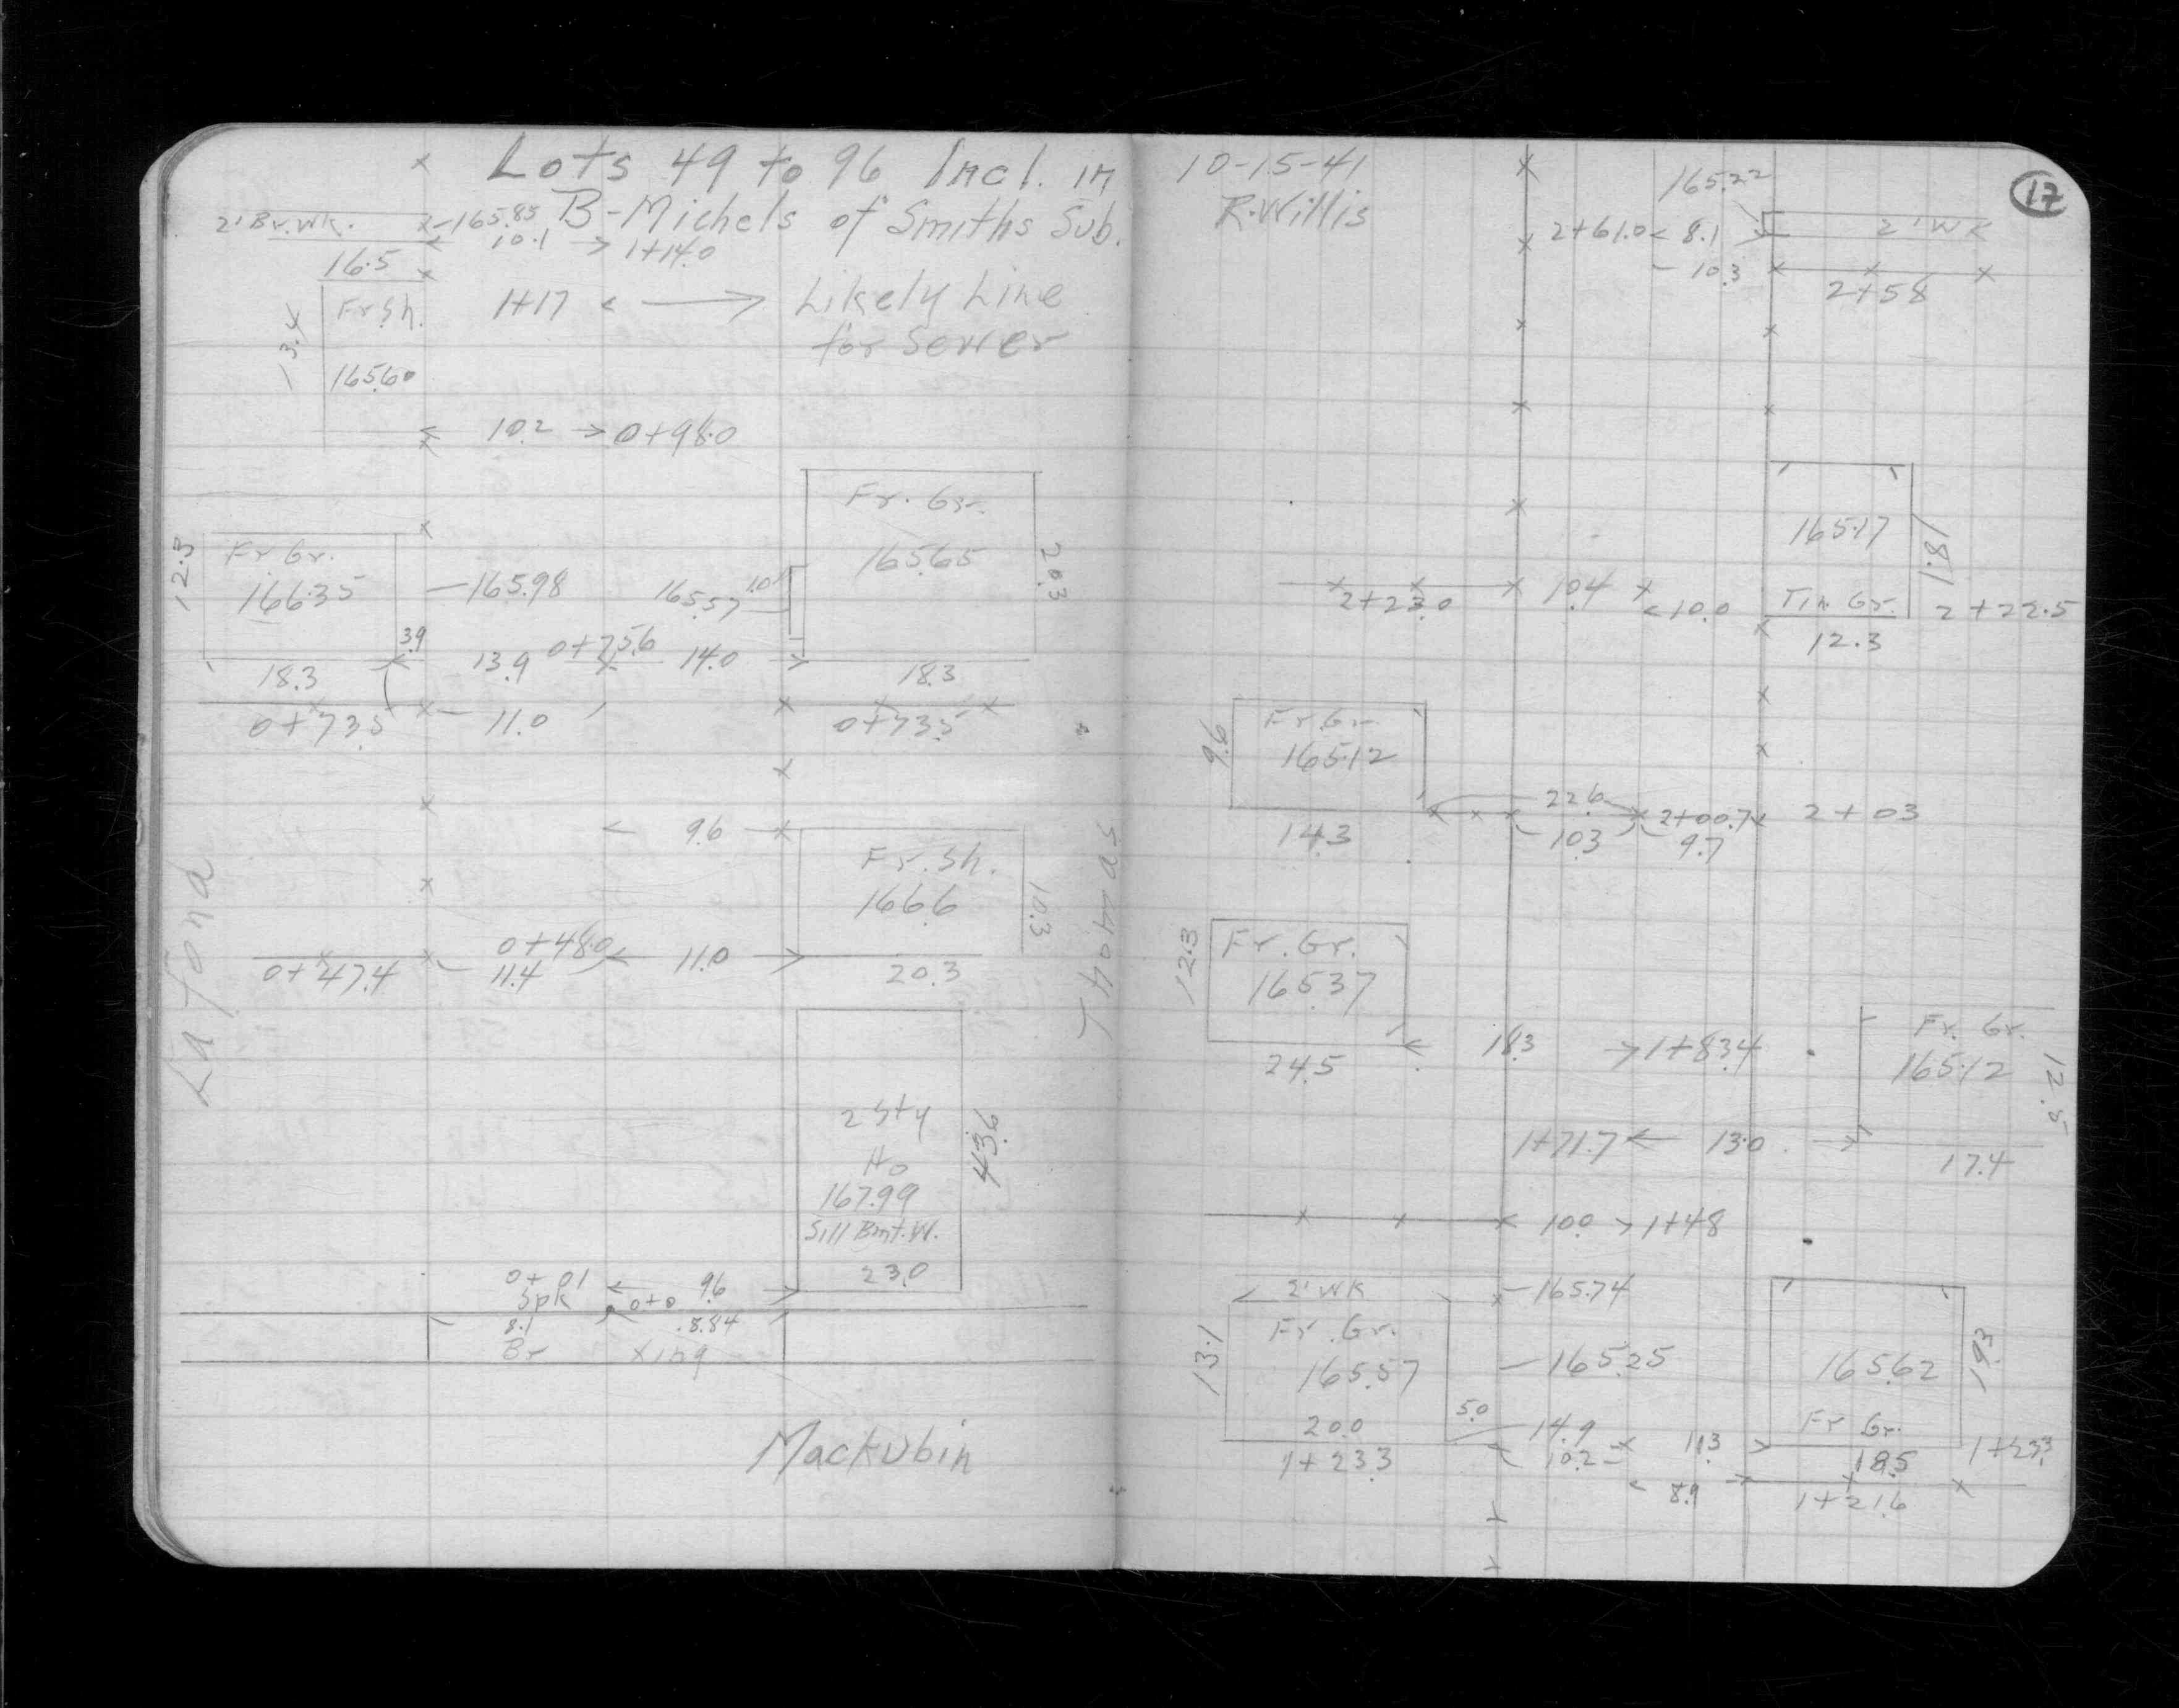 Lots 49 to 96 Incl. in
B-Michels of Smiths Sub.
2' Br. Wk.
165.85
10.1 → 1+14.0
16.5
Fr Sh.
13.4
165.60
1+17 ← → Likely Line
for Sewer
10.2 → 0+98.0
Fr. Gr.
165.65
20.3
12.3
Fr Gr.
166.35
165.98
165.57
1.0
3.9
18.3
13.9
0+75.6
14.0
18.3
0+73.5
11.0
0+73.5
9.6
Fr. Sh.
166.6
10.3
Latona
Thomas
0+48.0
0+47.4
11.4
11.0
20.3
2 Sty
Ho
167.99
Sill Bmt. W.
23.0
43.6
0+01
Spk
9.6
0+0
8.1
8.84
Br Xing
Mackubin
10-15-41
R. Willis
17
165.22
2+61.0 ← 8.1
2' WK
10.3
2+58
165.17
18.1
Tin. Gr.
12.3
2+22.5
2+23.0
10.4
10.0
Fr. Gr.
165.12
9.6
14.3
22.6
10.3
2+00.7
9.7
2+03
12.3
Fr. Gr.
165.37
24.5
18.3 → 1+83.4
Fr. Gr.
165.12
12.5
1+71.7 ← 13.0
17.4
10.0 → 1+48
2' WK
165.74
Fr. Gr.
13.1
165.57
165.25
20.0
1+23.3
5.0
14.9
10.2
11.3
165.62
19.3
Fr Gr.
18.5
8.9
1+21.6